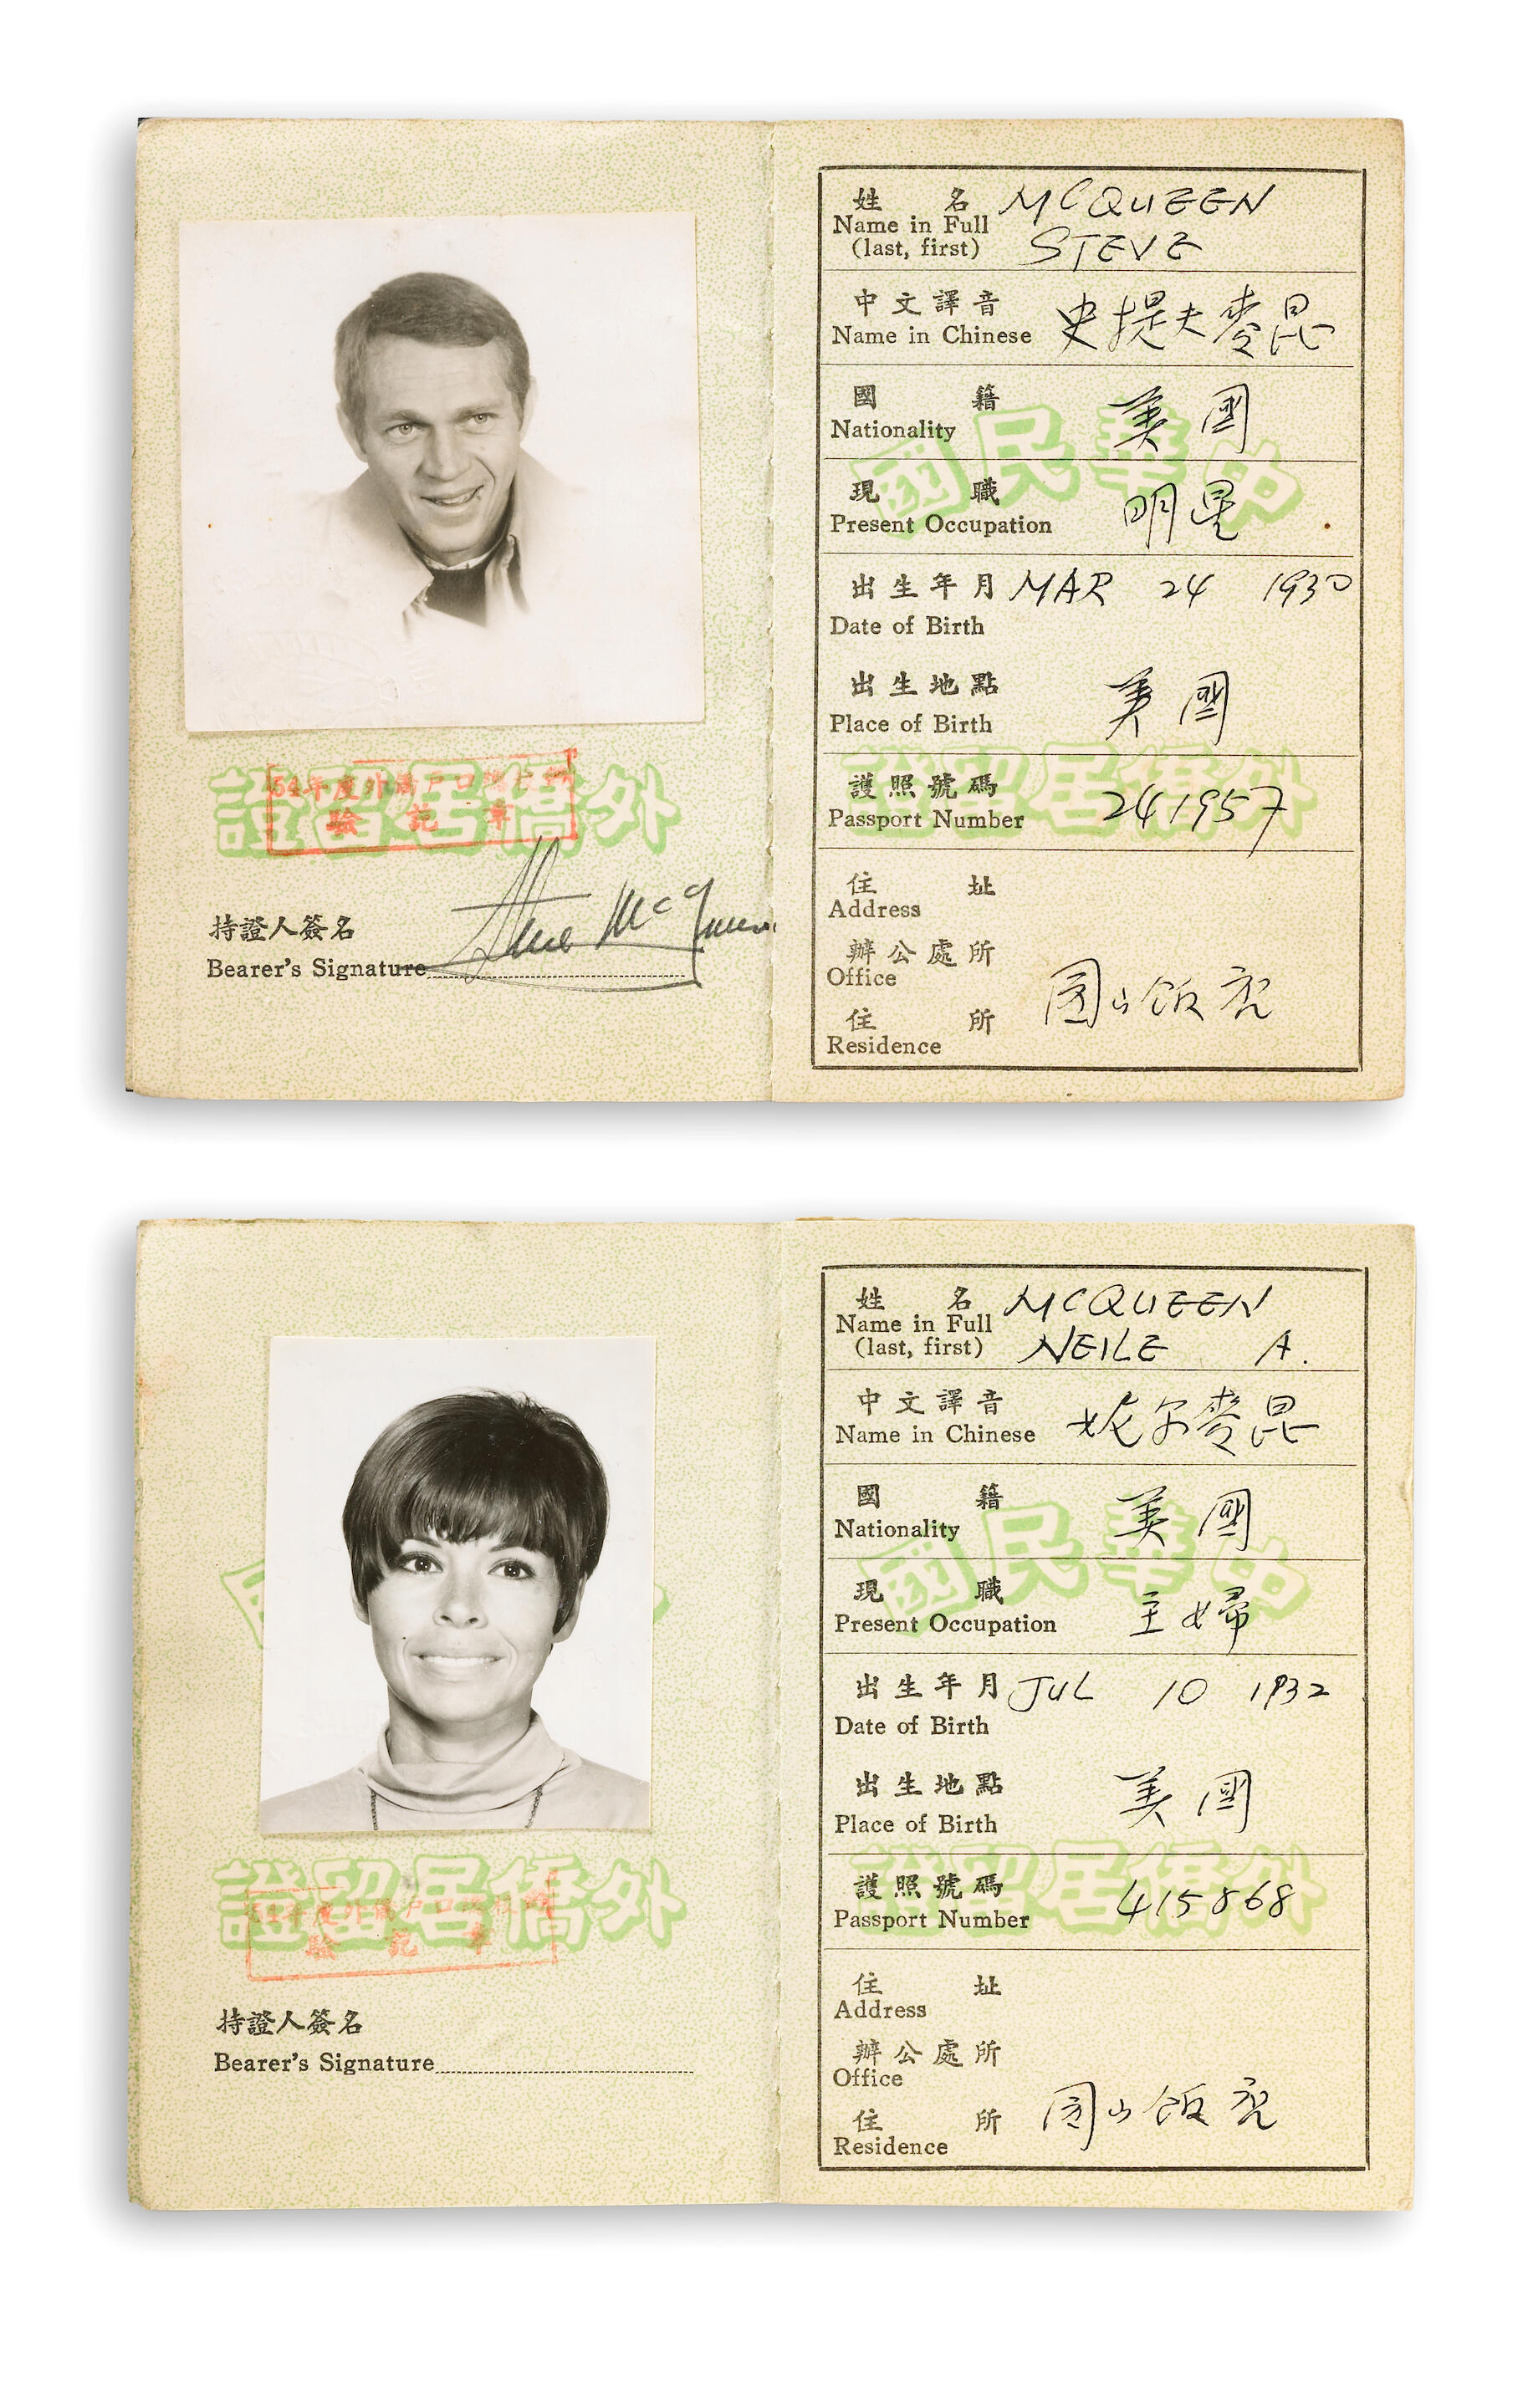 外僑居留證
54年度外僑戶口
驗記章
持證人簽名
Bearer's Signature Steve McQueen
姓 名 MCQUEEN
Name in Full
(last, first) STEVE
中文譯音 史提夫麥昆
Name in Chinese
國 籍 美國
Nationality
中華民國
現 職 明星
Present Occupation
出生年月 MAR 24 1930
Date of Birth
出生地點 美國
Place of Birth
外僑居留證
護照號碼 241957
Passport Number
住 址
Address
辦公處所
Office
圓山飯店
住 所
Residence
外僑居留證
年度外僑戶口
驗記章
持證人簽名
Bearer's Signature
姓 名 MCQUEEN
Name in Full
(last, first) NEILE A.
中文譯音 妮尔麥昆
Name in Chinese
國 籍 美國
Nationality
中華民國
現 職 主婦
Present Occupation
出生年月 JUL 10 1932
Date of Birth
出生地點 美國
Place of Birth
外僑居留證
護照號碼 415868
Passport Number
住 址
Address
辦公處所
Office
圓山飯店
住 所
Residence